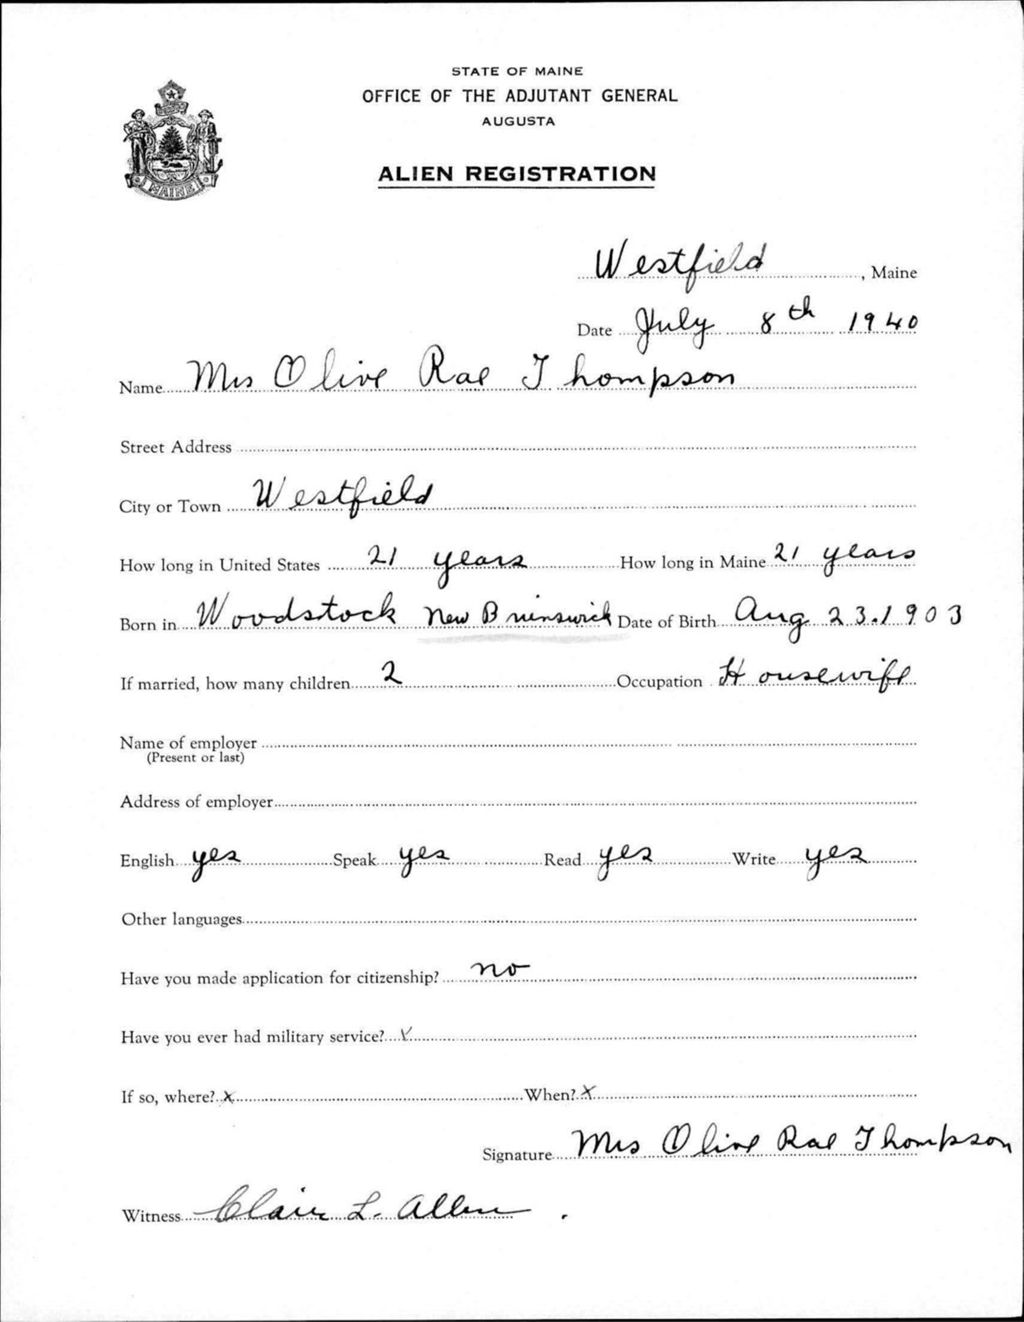 STATE OF MAINE
OFFICE OF THE ADJUTANT GENERAL
AUGUSTA
ALIEN REGISTRATION
MAINE
Westfield, Maine
Date July 8th 1940
Name Mrs Olive Rae Thompson
Street Address
City or Town Westfield
How long in United States 21 years How long in Maine 21 years
Born in Woodstock New Brunswick Date of Birth Aug 23.1903
If married, how many children 2 Occupation Housewife
Name of employer
(Present or last)
Address of employer
English yes Speak yes Read yes Write yes
Other languages
Have you made application for citizenship? no
Have you ever had military service? ✓
If so, where? x When? x
Signature Mrs Olive Rae Thompson
Witness Clair L. Allen .